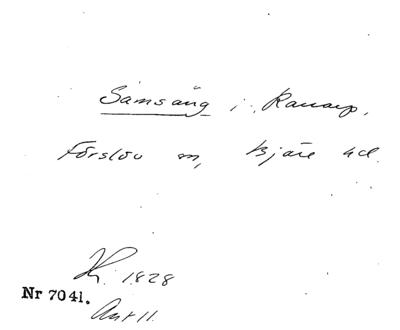 Samsäng i Ranarp,
Förslöv sn, Bjäre hd.
H. 1828
Nr 7041.
Ant 11.